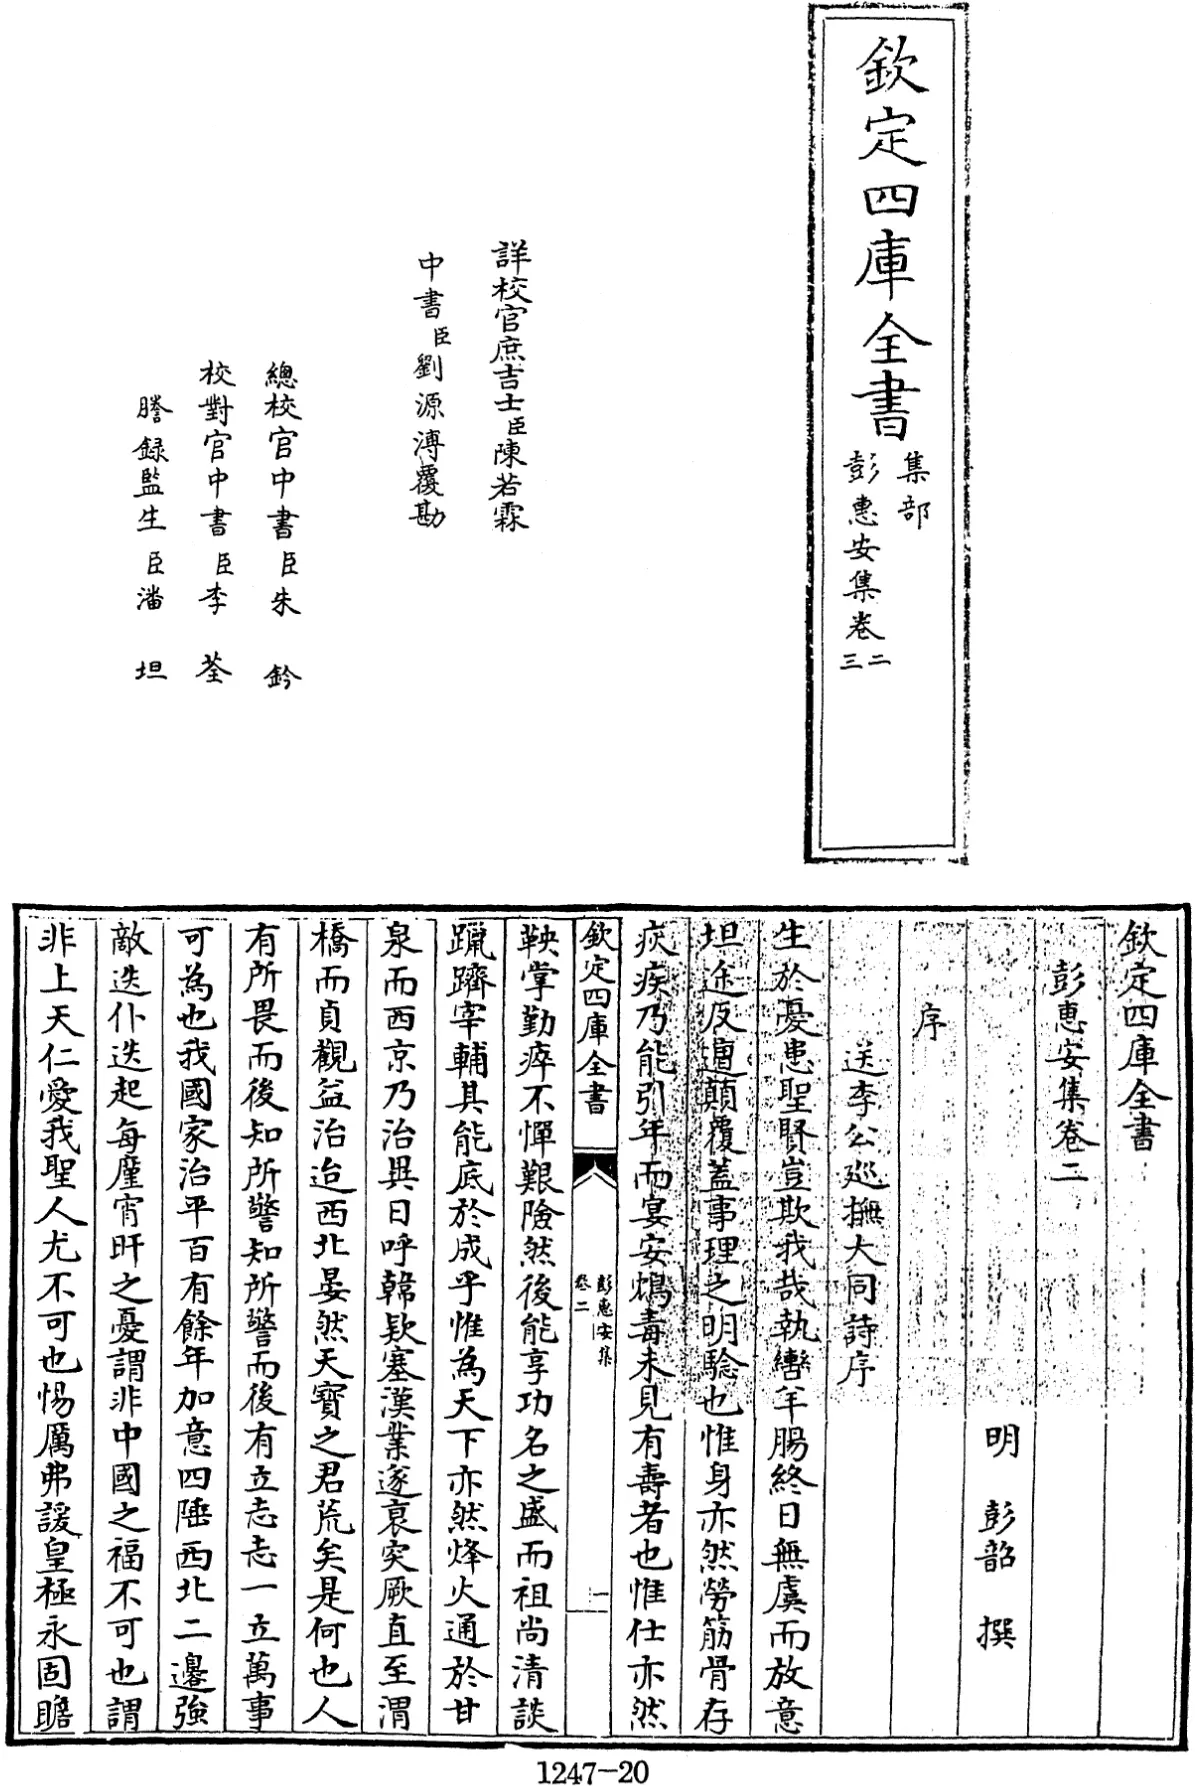 欽定四庫全書
集部
彭惠安集卷二
三
詳校官庶吉士臣陳若霖
中書臣劉源溥覆勘
總校官中書臣朱鈐
校對官中書臣李荃
謄錄監生臣潘坦
欽定四庫全書
彭惠安集卷二
明 彭韶 撰
序
送李公巡撫大同詩序
生於憂患聖賢豈欺我哉執轡羊腸終日無虞而放意
坦途反遭顛覆蓋事理之明驗也惟身亦然勞筋骨存
疢疾乃能引年而宴安鴆毒未見有壽者也惟仕亦然
欽定四庫全書
彭惠安集
卷二
一
鞅掌勤瘁不憚艱險然後能享功名之盛而祖尚清談
躐躋宰輔其能底於成乎惟為天下亦然烽火通於甘
泉而西京乃治異日呼韓欵塞漢業遂衰突厥直至渭
橋而貞觀益治迨西北晏然天寶之君荒矣是何也人
有所畏而後知所警知所警而後有立志志一立萬事
可為也我國家治平百有餘年加意四陲西北二邊強
敵迭仆迭起每廑宵旰之憂謂非中國之福不可也謂
非上天仁愛我聖人尤不可也惕厲弗諼皇極永固瞻
1247-20